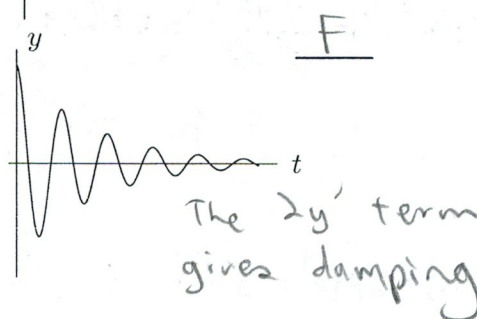 y
F
t
The 2y' term
gives damping